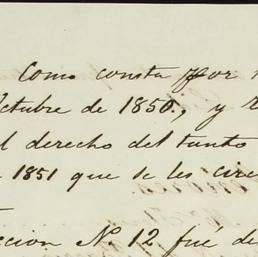 Como consta por
Octubre de 1850., y
derecho del tanto
1851 que se les
Nº. 12 fué de